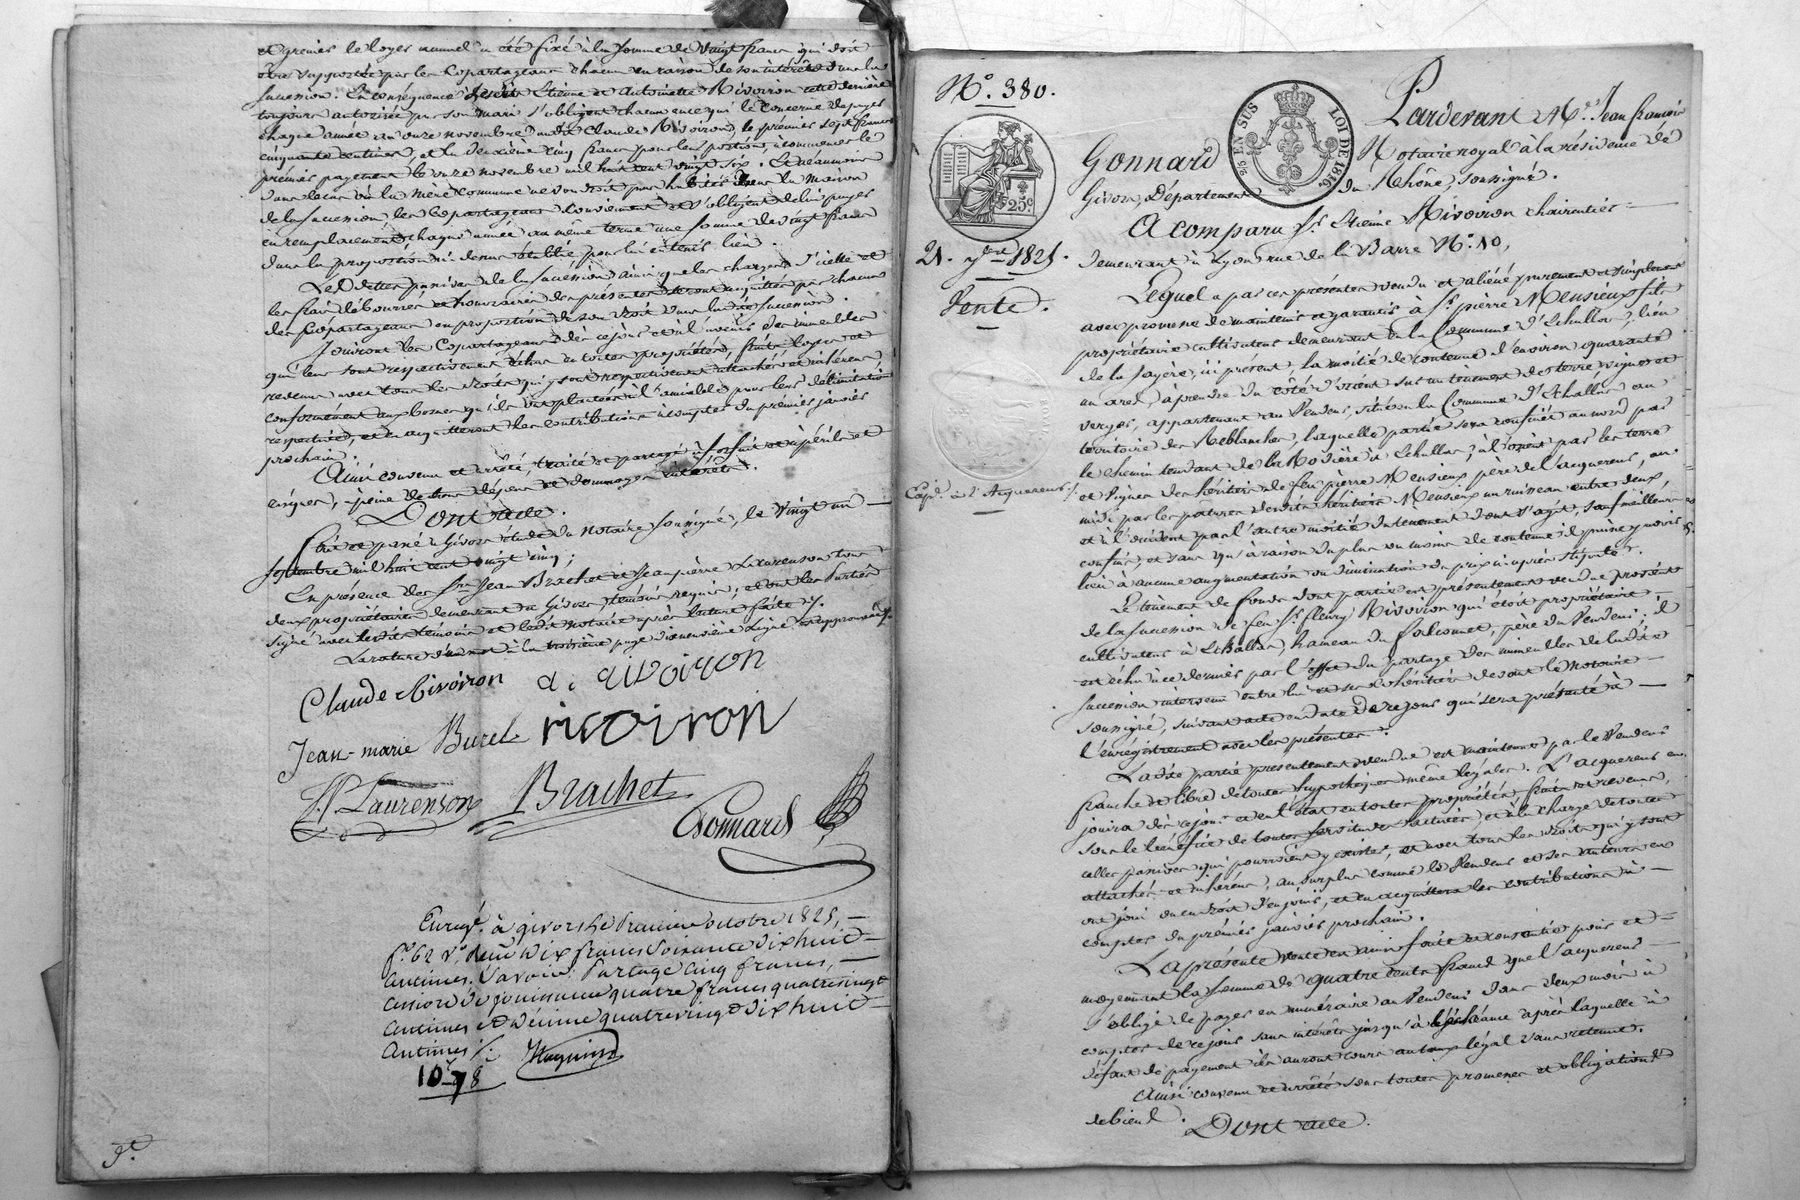 et grenier le loyer annuel a été fixé à la somme de vingt francs qui doit
être supportée par les Copartageans chacun en raison de son intérêt dans la
succession. En conséquence lesdits Etienne et Antoinette Rivoiron cette dernière
toujours autorisée par son mari s'obligent chacun en ce qui le concerne de payer
chaque année au onze novembre audit Claude Rivoiron, le premier sept francs
cinquante centimes, et la deuxième cinq francs pour leurs portions, à commencer le
premier payement le onze novembre mil huit cent vingt six. Et néanmoins
dans le cas où la mère commune ne voudroit pas habiter dans la maison
de la succession les Copartageans conviennent et s'obligent de lui payer
en remplacement chaque année au même terme une somme de vingt francs
dans la proportion ci-dessus établie pour lui en tenir lieu.
Les dettes passives de la succession ainsi que les charges d'icelle et
les frais déboursés et honoraires des présentes seront acquittés par chacun
des Copartageans en proportion de son droit dans ladite succession.
Jouiront les Copartageans dès ce jour et à l'avenir des immeubles
qui leur sont respectivement échus en toutes propriétés, fruits loyers et
revenus avec tous les droits qui y sont respectivement attachés et inhérens
conformément aux bornes qu'ils ont plantées à l'amiable pour leur délimitation
respective, et en acquitteront les contributions à compter du premier janvier
prochain.
Ainsi convenu et arrêté, traité et partagé à forfait et à périls et
risques, à peine de tous dépens et dommages intérêts.
Dont acte.
Fait et passé à Givors étude du Notaire soussigné, le vingt un
septembre mil huit cent vingt cinq;
En présence des Srs Jean Brachet et Jean pierre Laurenson tous
deux propriétaires demeurant à Givors, témoins requis; et ont les parties
signé avec lesdits témoins et ledit notaire après lecture faite ./.
La rature d'un mot à la troisième page dixneuvième ligne est approuvée ./.
Claude Rivoiron a. rivoiron
Jean-marie Burel rivoiron
J.P. Laurenson Brachet
Gonnard
Enregé. à givors le Premier octobre 1825,
f° 62 v° Reçu Dix francs Soixante Dix huit
Centimes. Savoir: Partage Cinq francs,
Cession de jouissance quatre francs quatre vingt
Centimes et Décime quatre vingt Dix huit
Centimes ./.
10-78
N°. 380.
25 EN SUS
LOI DE 1816.
25c
21. 7bre 1825.
Vente.
Expn. à l'Acquereur ./.
Pardevant Me. Jean françois
Gonnard Notaire royal à la résidence de
Givors, Département du Rhône, soussigné.
A comparu Sr. Etienne Rivoiron chaircutier
demeurant à Lyon rue de la Barre N°. 10,
Lequel a par ces présentes vendu et aliéné purement et simplement
avec promesse de maintenir et garantir à Sr. pierre Mensieux fils
propriétaire cultivateur demeurant en la Commune d'Echallas, lieu
de la fayere, ici présent, la moitié de contenue d'environ quarante
un ares, à prendre du côté d'orient sur un tènement de terre vigne et
verger, appartenant au Vendeur, situé en la Commune d'Echallas au
territoire des Reblanches, laquelle partie sera confinée au nord par
le chemin tendant de la Rodière à Echallas; à l'orient par les terre
et vignes des héritiers de feu pierre Mensieux père de l'acquereur, au
midi par les patures desdits héritiers Mensieux un ruisseau entre deux,
et à l'occident par l'autre moitié du tènement dont s'agit, sauf meilleurs
confins, et sans qu'à raison du plus ou moins de contenue il puisse y avoir
lieu à aucune augmentation ou diminution du prix ci-après stipulé.
Le tènement de fonds dont partie est présentement vendue provient
de la succession de feu Sr. fleury Rivoiron qui étoit propriétaire
cultivateur à Echallas, hameau du falconet, père du Vendeur; il
est échu à ce dernier par l'effet du partage des immeubles de ladite
succession intervenu entre lui et ses cohéritiers devant le Notaire
soussigné, suivant acte en date de ce jour qui sera présenté à
l'enregistrement avec les présentes.
Ladite partie présentement vendue est maintenue par le Vendeur
franche et libre de toutes hypothèques même légales. L'acquereur en
jouira dès ce jour et en l'état en toutes propriétés, fruits et revenus,
sous le bénéfice de toutes servitudes actives, et à la charge de toutes
celles passives qui pourroient y exister, et avec tous les droits qui y sont
attachés et inhérens, au surplus comme le Vendeur et ses auteurs en
ont joui ou eu droit d'en jouir, et en acquittera les contributions à
compter du premier janvier prochain.
La présente vente est ainsi faite et consentie pour et
moyennant la somme de quatre cents francs que l'acquereur
s'oblige de payer en numéraire au Vendeur dans deux mois à
compter de ce jour sans intérêts jusqu'à l'échéance après laquelle à
défaut de payement ils auront cours au taux légal sans retenue.
Ainsi convenu et arrêté sous toutes promesses et obligations
de biens.
Dont acte.